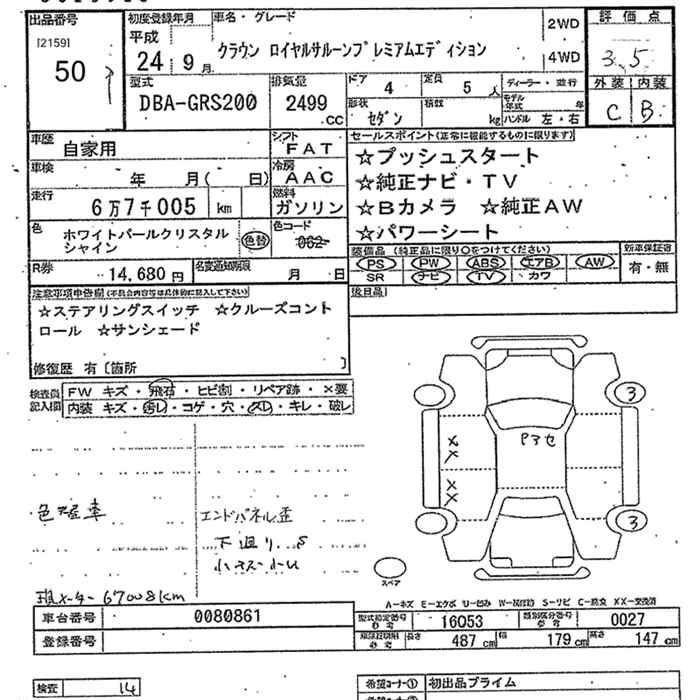 出品番号 初度登録年月 車名・グレード 評価点
[2159] 平成 2WD
50 24 9月 クラウン ロイヤルサルーンプレミアムエディション 4WD 3.5
型式 排気量 ドア 4 定員 5人 ディーラー・並行 外装 内装
DBA-GRS200 2499 cc 形状 セダン 積数 kg モデル年式 年 C B
ハンドル 左・右
車歴 自家用 シフト FAT セールスポイント(正常に機能するものに限ります)
車検 年 月( 日) 冷房 AAC ☆プッシュスタート
走行 6万7千005 km 燃料 ガソリン ☆純正ナビ・TV
色 ホワイトパールクリスタル 色替 色コード ☆Bカメラ ☆純正AW
シャイン 062 ☆パワーシート
R券 14,680円 名変通知期限 月 日 装備品 (純正品に限り○をつけてください) 新車保証書
PS PW ABS エアB AW 有・無
SR ナビ TV カワ
注意事項申告欄(不具合内容等は具体的に記入して下さい) 後日品
☆ステアリングスイッチ ☆クルーズコント
ロール ☆サンシェード
修復歴 有〔箇所 〕
検査員 FW キズ・飛石・ヒビ割・リペア跡・×要
記入欄 内装 キズ・汚レ・コゲ・穴・スレ・キレ・破レ
3
XX
XX
3
色替車 エンドパネル歪
下廻り S
小キズ小U
スペア
現メーター 67008km
A-キズ E-エクボ U-凹み W-波板跡 S-サビ C-腐食 XX-交換済
車台番号 0080861 型式指定番号 16053 類別区分番号 0027
登録番号 長さ 487cm 幅 179cm 高さ 147cm
検査 14 希望コーナー① 初出品プライム
希望コーナー②